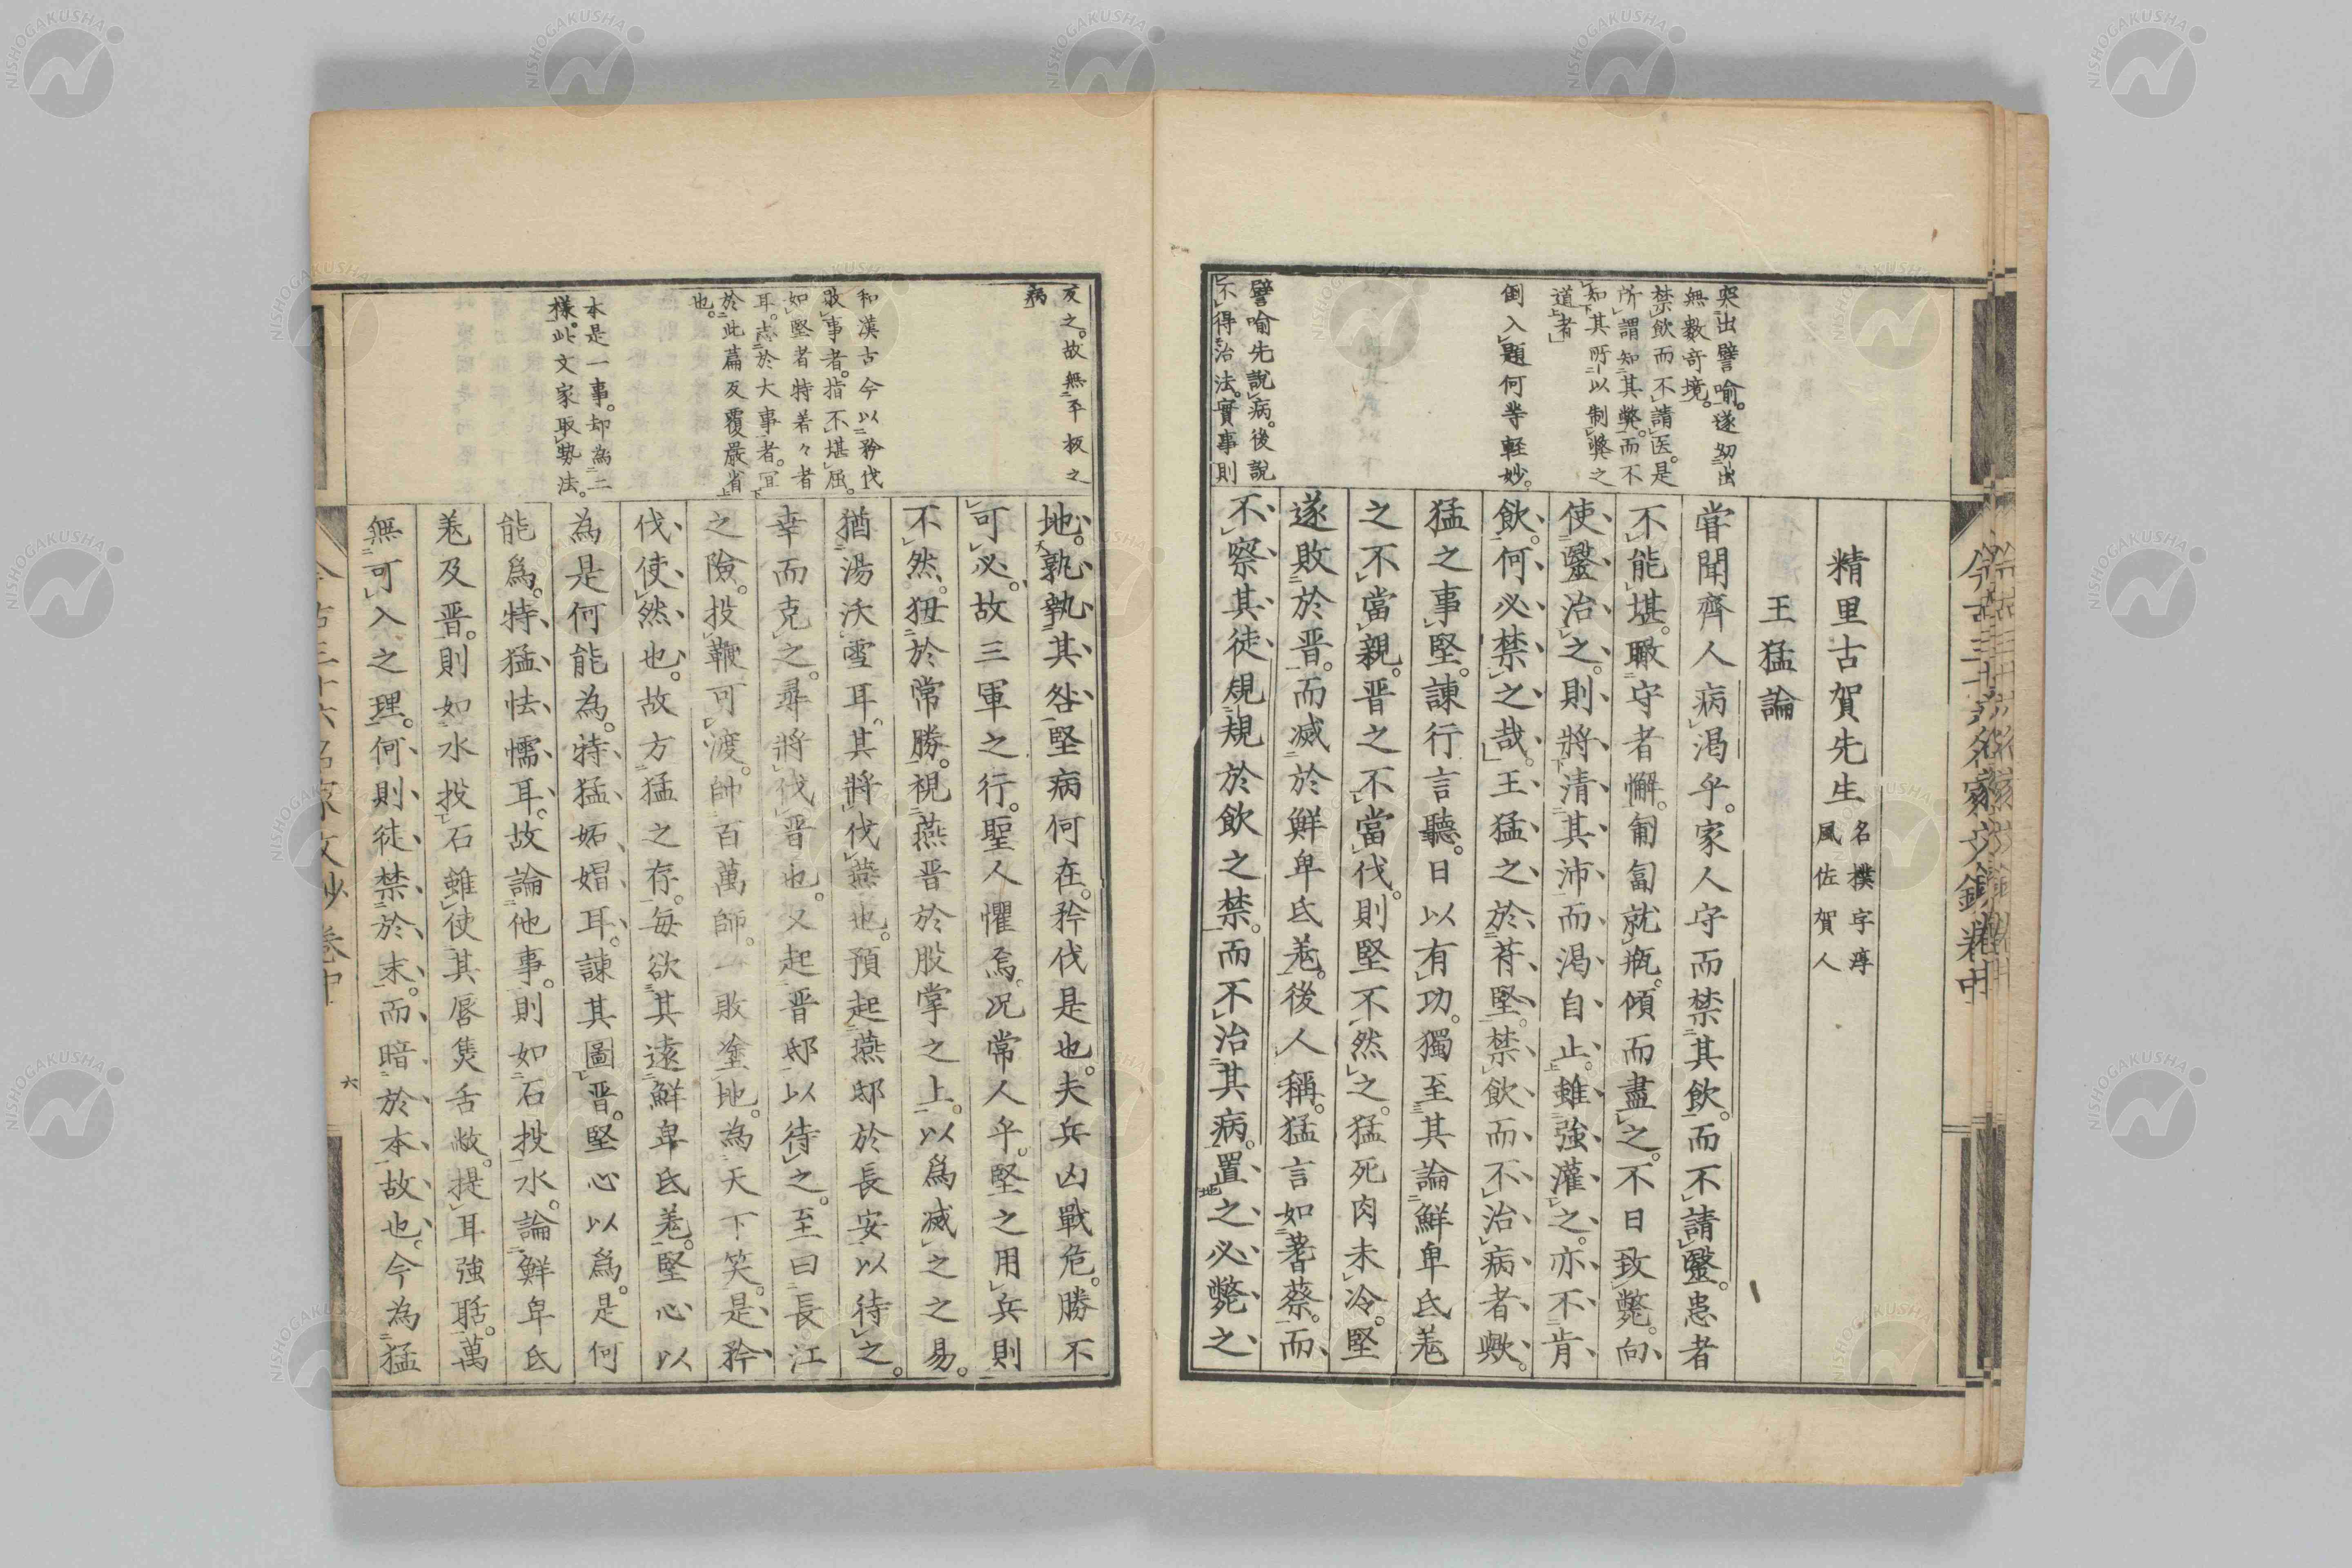 精里古賀先生 名樸字淳
風佐賀人
王猛論
甞聞齊人病渇乎。家人守而禁其飲。而不請毉。患者
不能堪。瞰守者懈。匍匐就瓶。傾而盡之。不日致斃。向
使毉治之。則將清其沛而渇自止。雖強灌之。亦不肯
飲。何必禁之哉。王猛之於苻堅。禁飲而不治病者歟。
猛之事堅。諫行言聽。日以有功。獨至其論鮮卑氐羌
之不當親。晋之不當伐。則堅不然之。猛死肉未冷。堅
遂敗於晋。而滅於鮮卑氐羌。後人稱。猛言如蓍蔡。而
不察其徒規規於飲之禁。而不治其病。置之必斃之
突出譬喻。遂勿出
無數奇境。
禁飲而不請医。是
所謂知其弊。而不
知其所以制弊之
道者
倒入題何等軽妙。
譬喻先説病。後説
不得治法。實事則
地。孰執其咎。堅病何在。矜伐是也。夫兵凶戰危。勝不
可必。故三軍之行。聖人懼焉。况常人乎。堅之用兵則
不然。狃於常勝。視燕晋於股掌之上。以爲滅之之易。
猶湯沃雪耳。其將伐燕也。預起燕邸於長安以待之。
幸而克之。尋將伐晋也。又起晋邸以待之。至曰長江
之險。投鞭可渡。帥百萬師。一敗塗地。為天下笑。是矜
伐使然也。故方猛之存。毎欲其遠鮮卑氐羌。堅心以
為是何能為。特猛妬媢耳。諫其圖晋。堅心以爲。是何
能爲。特猛怯懦耳。故論他事。則如石投水。論鮮卑氐
羌及晋。則如水投石。雖使其唇焦舌敝。提耳強聒。萬
無可入之理。何則徒禁於末。而暗於本故也。今為猛
反之。故無平板之
病
和漢古今以矜伐
敗事者。指不堪屈。
如堅者特著々者
耳。志於大事者。冝
於此篇反覆嚴省
也。
本是一事。却為二
様。此文家取勢法。
今古三十六名家文鈔 卷中
六